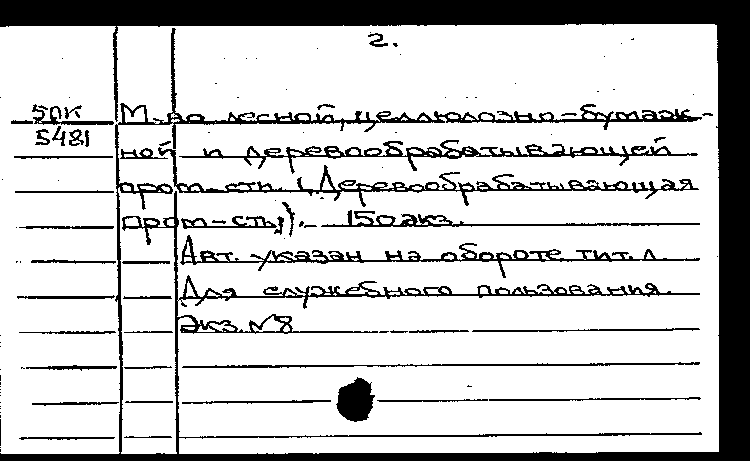 2.
5ПК М-во лесной, целлюлозно-бумаж-
5481
ной и деревообрабатывающей
пром-сти. (Деревообрабатывающая
пром-сть). 150 экз.
Авт. указан на обороте тит. л.
Для служебного пользования.
Экз. №8